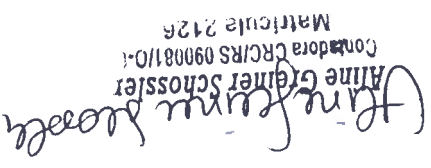 Aline Greiner Schossler
Contadora CRC/RS 090081/O-
Matrícula 2126